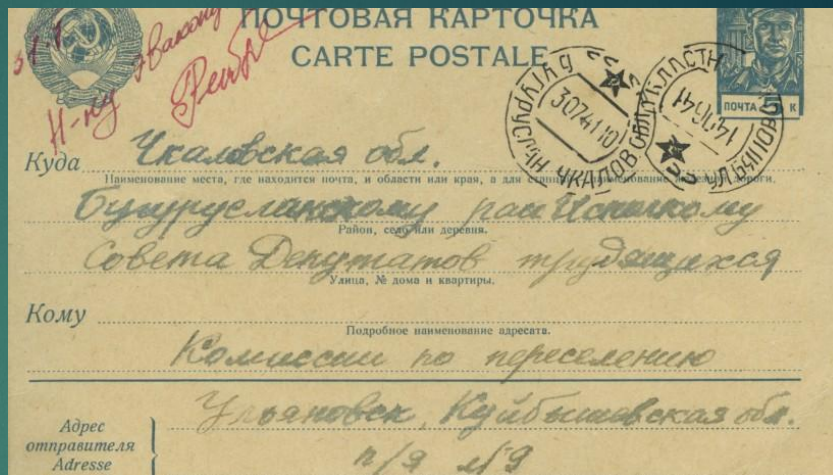 ПОЧТОВАЯ КАРТОЧКА
CARTE POSTALE
31.7.
Н-ку
БУГУРУСЛАН ЧКАЛОВ. ОБЛ.
30741 10
ПОЧТА К
Куда Чкаловская обл.
Наименование места, где находится почта, и области или края, а для станции наименование дороги.
Бугурусланскому рай Исполкому
Район, село или деревня.
Совета Депутатов трудящихся
Улица, № дома и квартиры.
Кому
Подробное наименование адресата.
Комиссии по переселению
Адрес
отправителя
Adresse
Ульяновск, Куйбышевская обл.
п/я